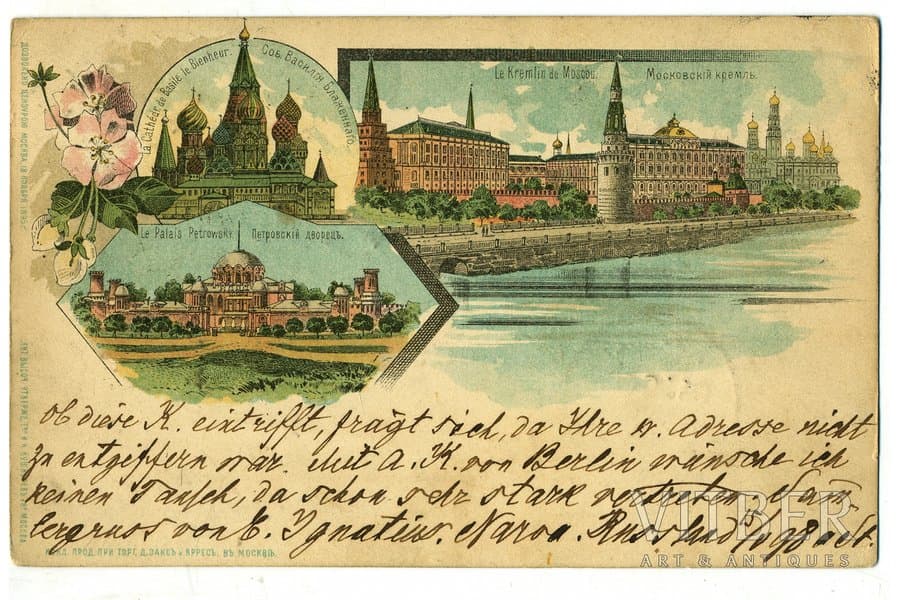 La Cathéd. de Basile le Bienheur.
Соб. Василія Блаженнаго.
Le Kremlin de Moscou. Московскій кремль.
Le Palais Petrowsky. Петровскій дворецъ.
Ob diese K. eintrifft, fragt sich, da Ihre w. Adresse nicht
zu entziffern war. Mit A. K. von Berlin wünsche ich
keinen Tausch, da schon sehr stark vertreten. Sam
lergruss von E. Ignatius. Narva. Russland
ДОЗВОЛЕНО ЦЕНЗУРОЮ МОСКВА 18 НОЯБРЯ 1895
ПРОД. ПРИ ТОРГ. Д. ЗАКСЪ И ВЪ МОСКВѢ.
VITBER
ART & ANTIQUES